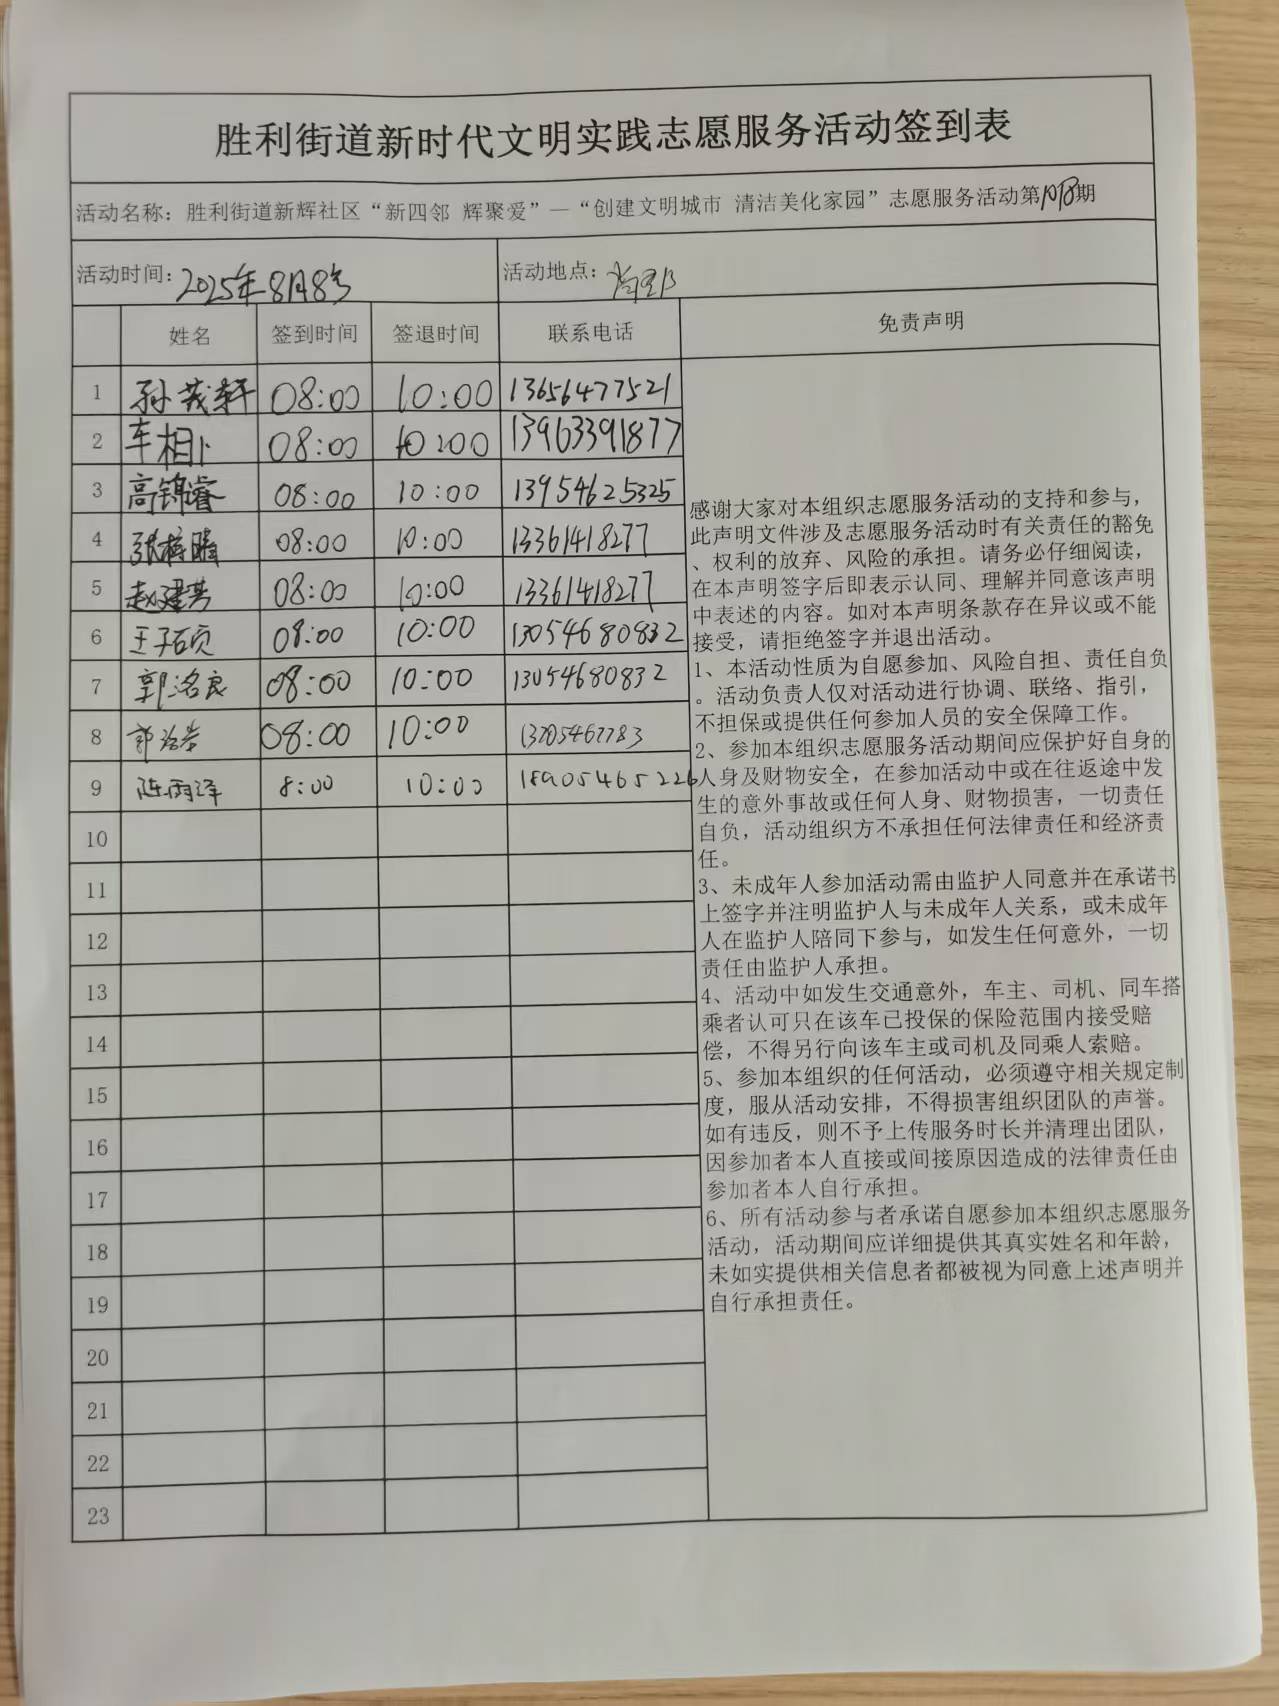 胜利街道新时代文明实践志愿服务活动签到表
活动名称：胜利街道新辉社区“新四邻 辉聚爱”—“创建文明城市 清洁美化家园”志愿服务活动第 期
活动时间：2025年8月8号 活动地点：
姓名 签到时间 签退时间 联系电话 免责声明
1 孙茂轩 08:00 10:00 13656477521
2 车相卜 08:00 10:00 13963391877
3 高锦睿 08:00 10:00 13954625325
4 08:00 10:00 13361418277
5 赵建芸 08:00 10:00 13361418277
6 王子硕 08:00 10:00 13054680832
7 郭洺良 08:00 10:00 13054680832
8 08:00 10:00
9 陈雨泽 8:00 10:00 18905465226
10
11
12
13
14
15
16
17
18
19
20
21
22
23
感谢大家对本组织志愿服务活动的支持和参与，
此声明文件涉及志愿服务活动时有关责任的豁免
、权利的放弃、风险的承担。请务必仔细阅读，
在本声明签字后即表示认同、理解并同意该声明
中表述的内容。如对本声明条款存在异议或不能
接受，请拒绝签字并退出活动。
1、本活动性质为自愿参加、风险自担、责任自负
。活动负责人仅对活动进行协调、联络、指引，
不担保或提供任何参加人员的安全保障工作。
2、参加本组织志愿服务活动期间应保护好自身的
人身及财物安全，在参加活动中或在往返途中发
生的意外事故或任何人身、财物损害，一切责任
自负，活动组织方不承担任何法律责任和经济责
任。
3、未成年人参加活动需由监护人同意并在承诺书
上签字并注明监护人与未成年人关系，或未成年
人在监护人陪同下参与，如发生任何意外，一切
责任由监护人承担。
4、活动中如发生交通意外，车主、司机、同车搭
乘者认可只在该车已投保的保险范围内接受赔
偿，不得另行向该车主或司机及同乘人索赔。
5、参加本组织的任何活动，必须遵守相关规定制
度，服从活动安排，不得损害组织团队的声誉。
如有违反，则不予上传服务时长并清理出团队，
因参加者本人直接或间接原因造成的法律责任由
参加者本人自行承担。
6、所有活动参与者承诺自愿参加本组织志愿服务
活动，活动期间应详细提供其真实姓名和年龄，
未如实提供相关信息者都被视为同意上述声明并
自行承担责任。